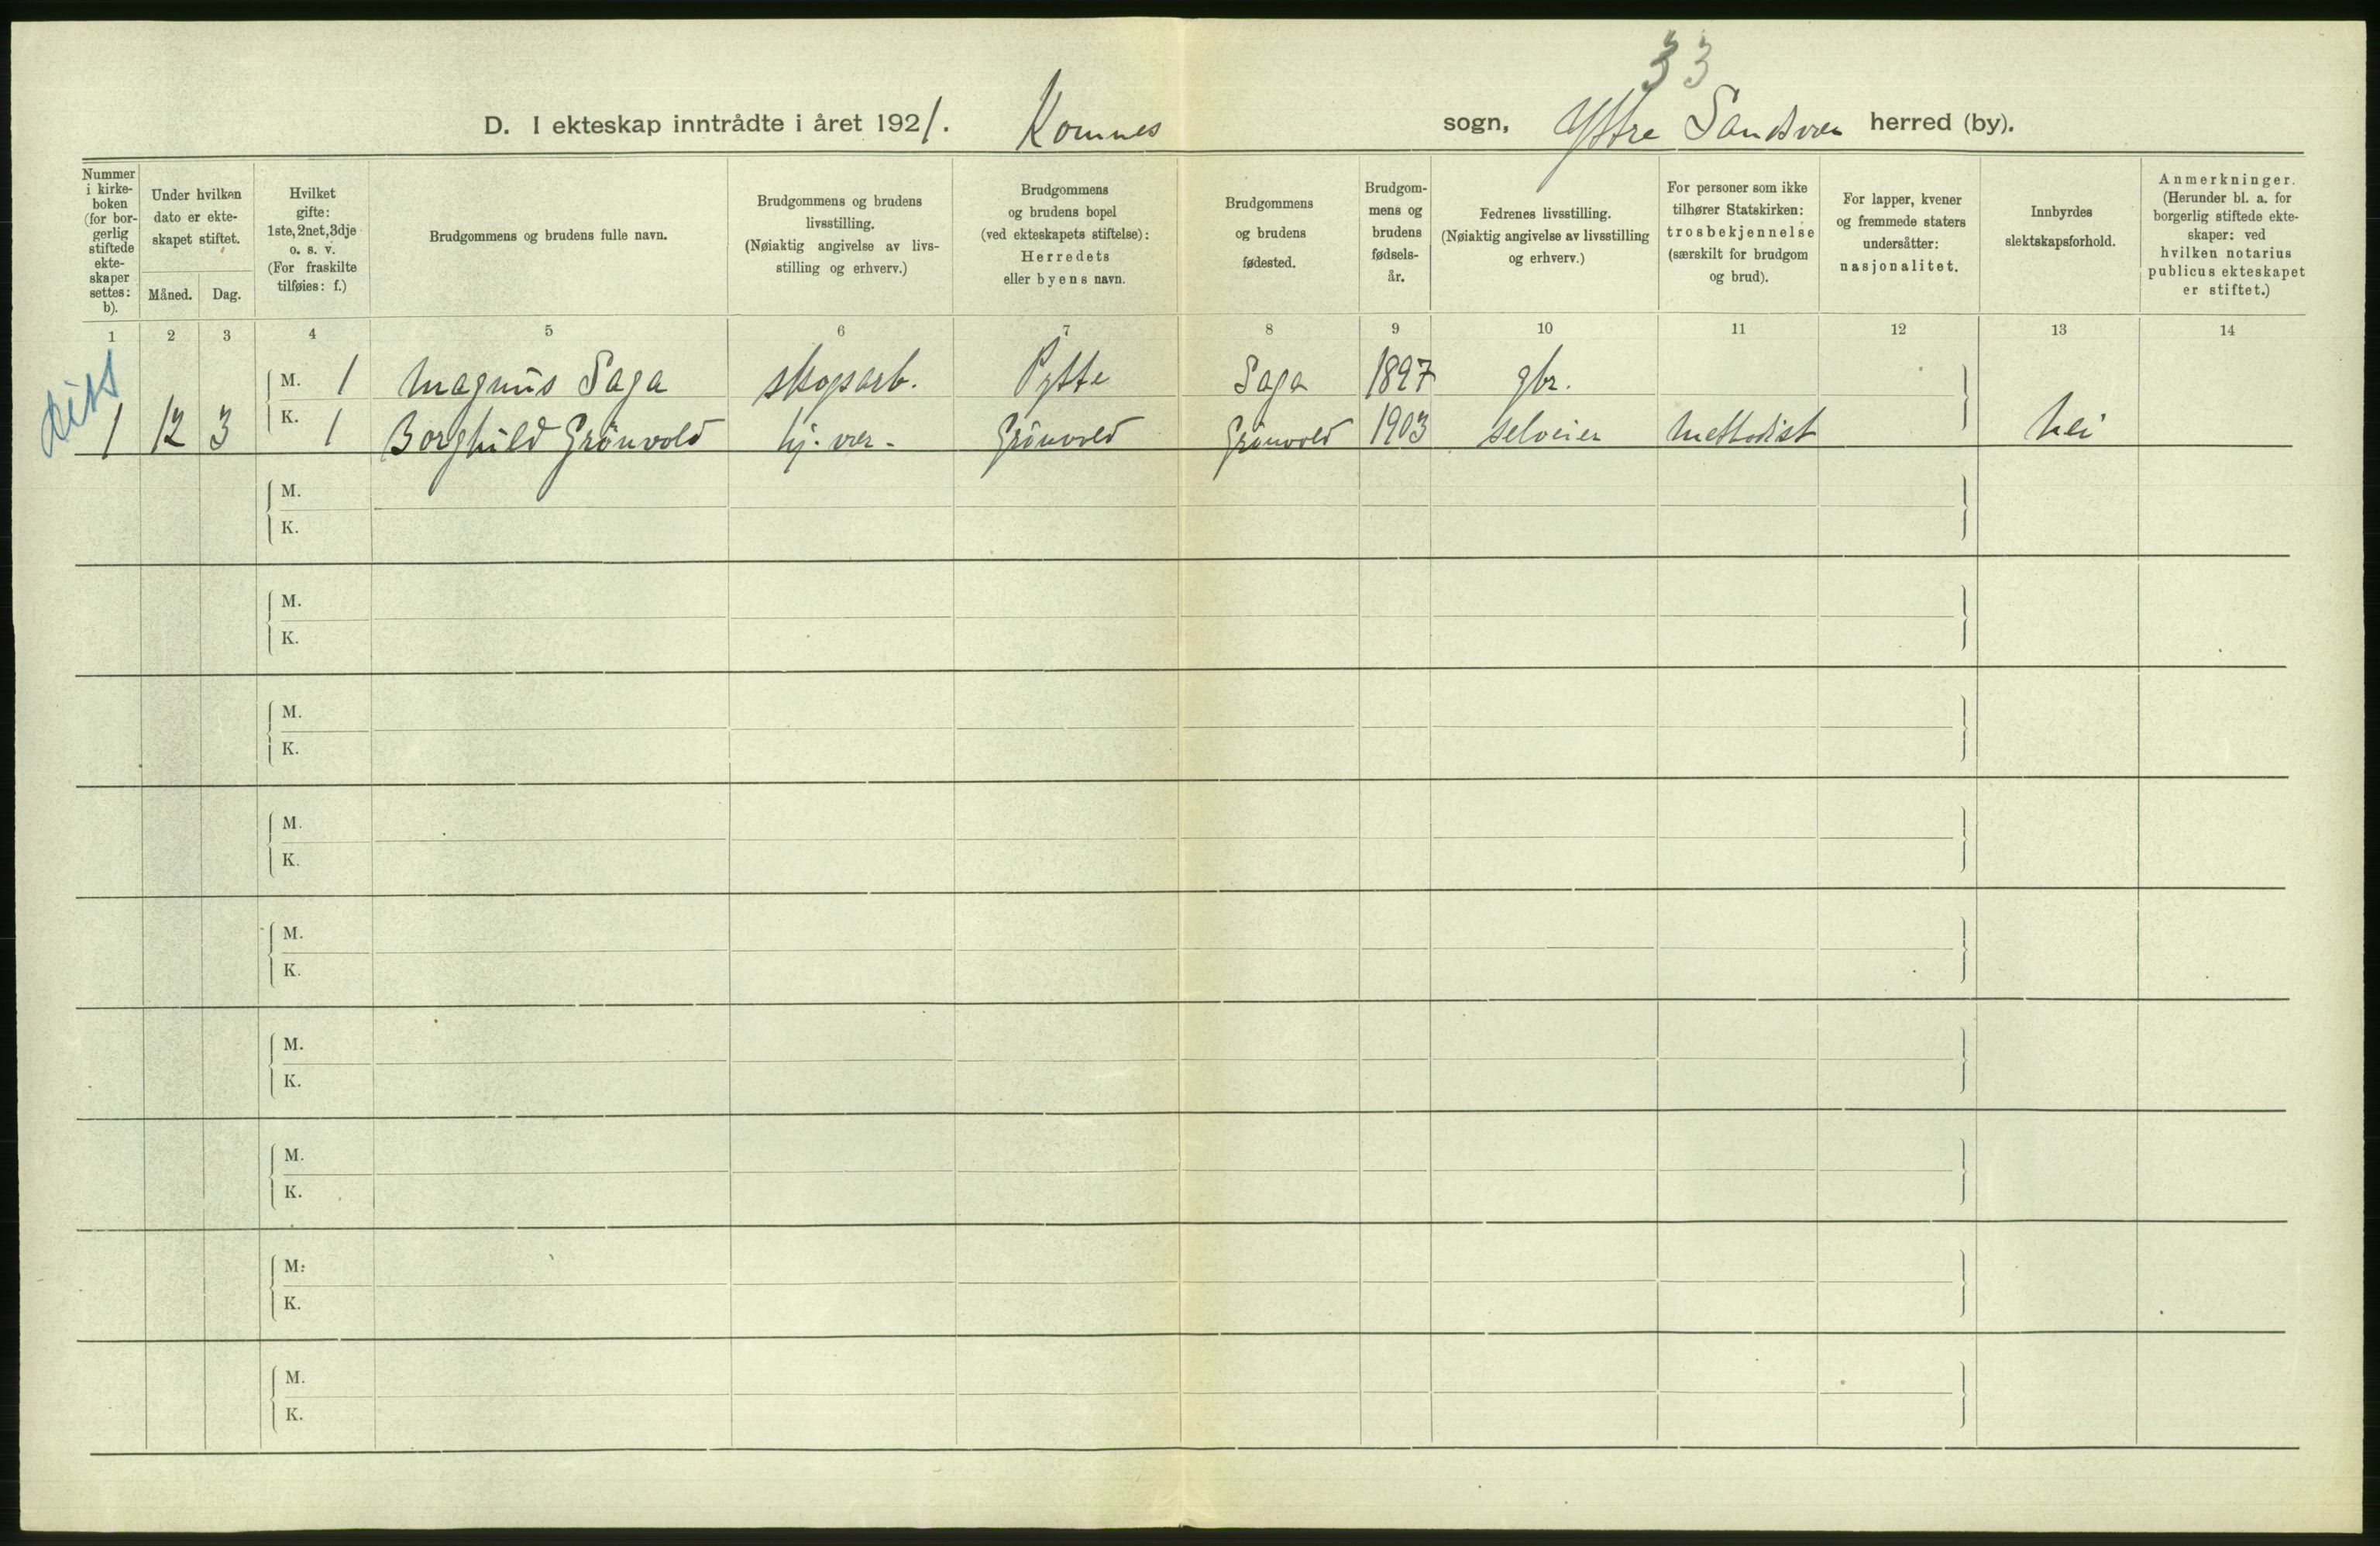 33
D. I ekteskap inntrådte i året 1921. Komnes sogn, Yttre Sandsvær herred (by).
Nummer i kirke- boken (for bor- gerlig stiftede ekte- skaper settes: b).
Under hvilken dato er ekte- skapet stiftet.
Måned. Dag.
Hvilket gifte: 1ste, 2net, 3dje o. s. v. (For fraskilte tilføies: f.)
Brudgommens og brudens fulle navn.
Brudgommens og brudens livsstilling. (Nøiaktig angivelse av livs- stilling og erhverv.)
Brudgommens og brudens bopel (ved ekteskapets stiftelse): Herredets eller byens navn.
Brudgommens og brudens fødested.
Brudgom- mens og brudens fødsels- år.
Fedrenes livsstilling. (Nøiaktig angivelse av livsstilling og erhverv.)
For personer som ikke tilhører Statskirken: trosbekjennelse (særskilt for brudgom og brud).
For lapper, kvener og fremmede staters undersåtter: nasjonalitet.
Innbyrdes slektskapsforhold.
Anmerkninger. (Herunder bl. a. for borgerlig stiftede ekte- skaper: ved hvilken notarius publicus ekteskapet er stiftet.)
1 2 3 4 5 6 7 8 9 10 11 12 13 14
M. 1 Magnus Saga skogsarb. Pytte Saga 1897 gbr.
1 12 3 K. 1 Borghild Grönvold hj. vær. Grönvold Grönvold 1903 selveier Methodist Nei
M.
K.
M.
K.
M.
K.
M.
K.
M.
K.
M.
K.
M.
K.
M.
K.
M.
K.